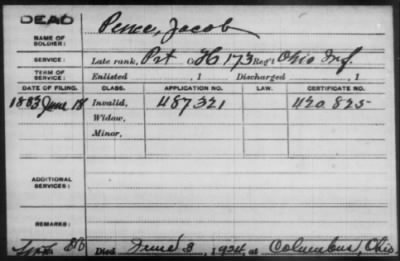 DEAD
NAME OF SOLDIER: Pence, Jacob
SERVICE: Late rank, Pvt Co H 173 Reg't Ohio Inf.
TERM OF SERVICE: Enlisted , 1 Discharged , 1
DATE OF FILING. CLASS. APPLICATION NO. LAW. CERTIFICATE NO.
1883 June 18 Invalid, 487321 420.825
Widow,
Minor,
ADDITIONAL SERVICES:
REMARKS:
Died June 3, 1924, at Columbus, Ohio